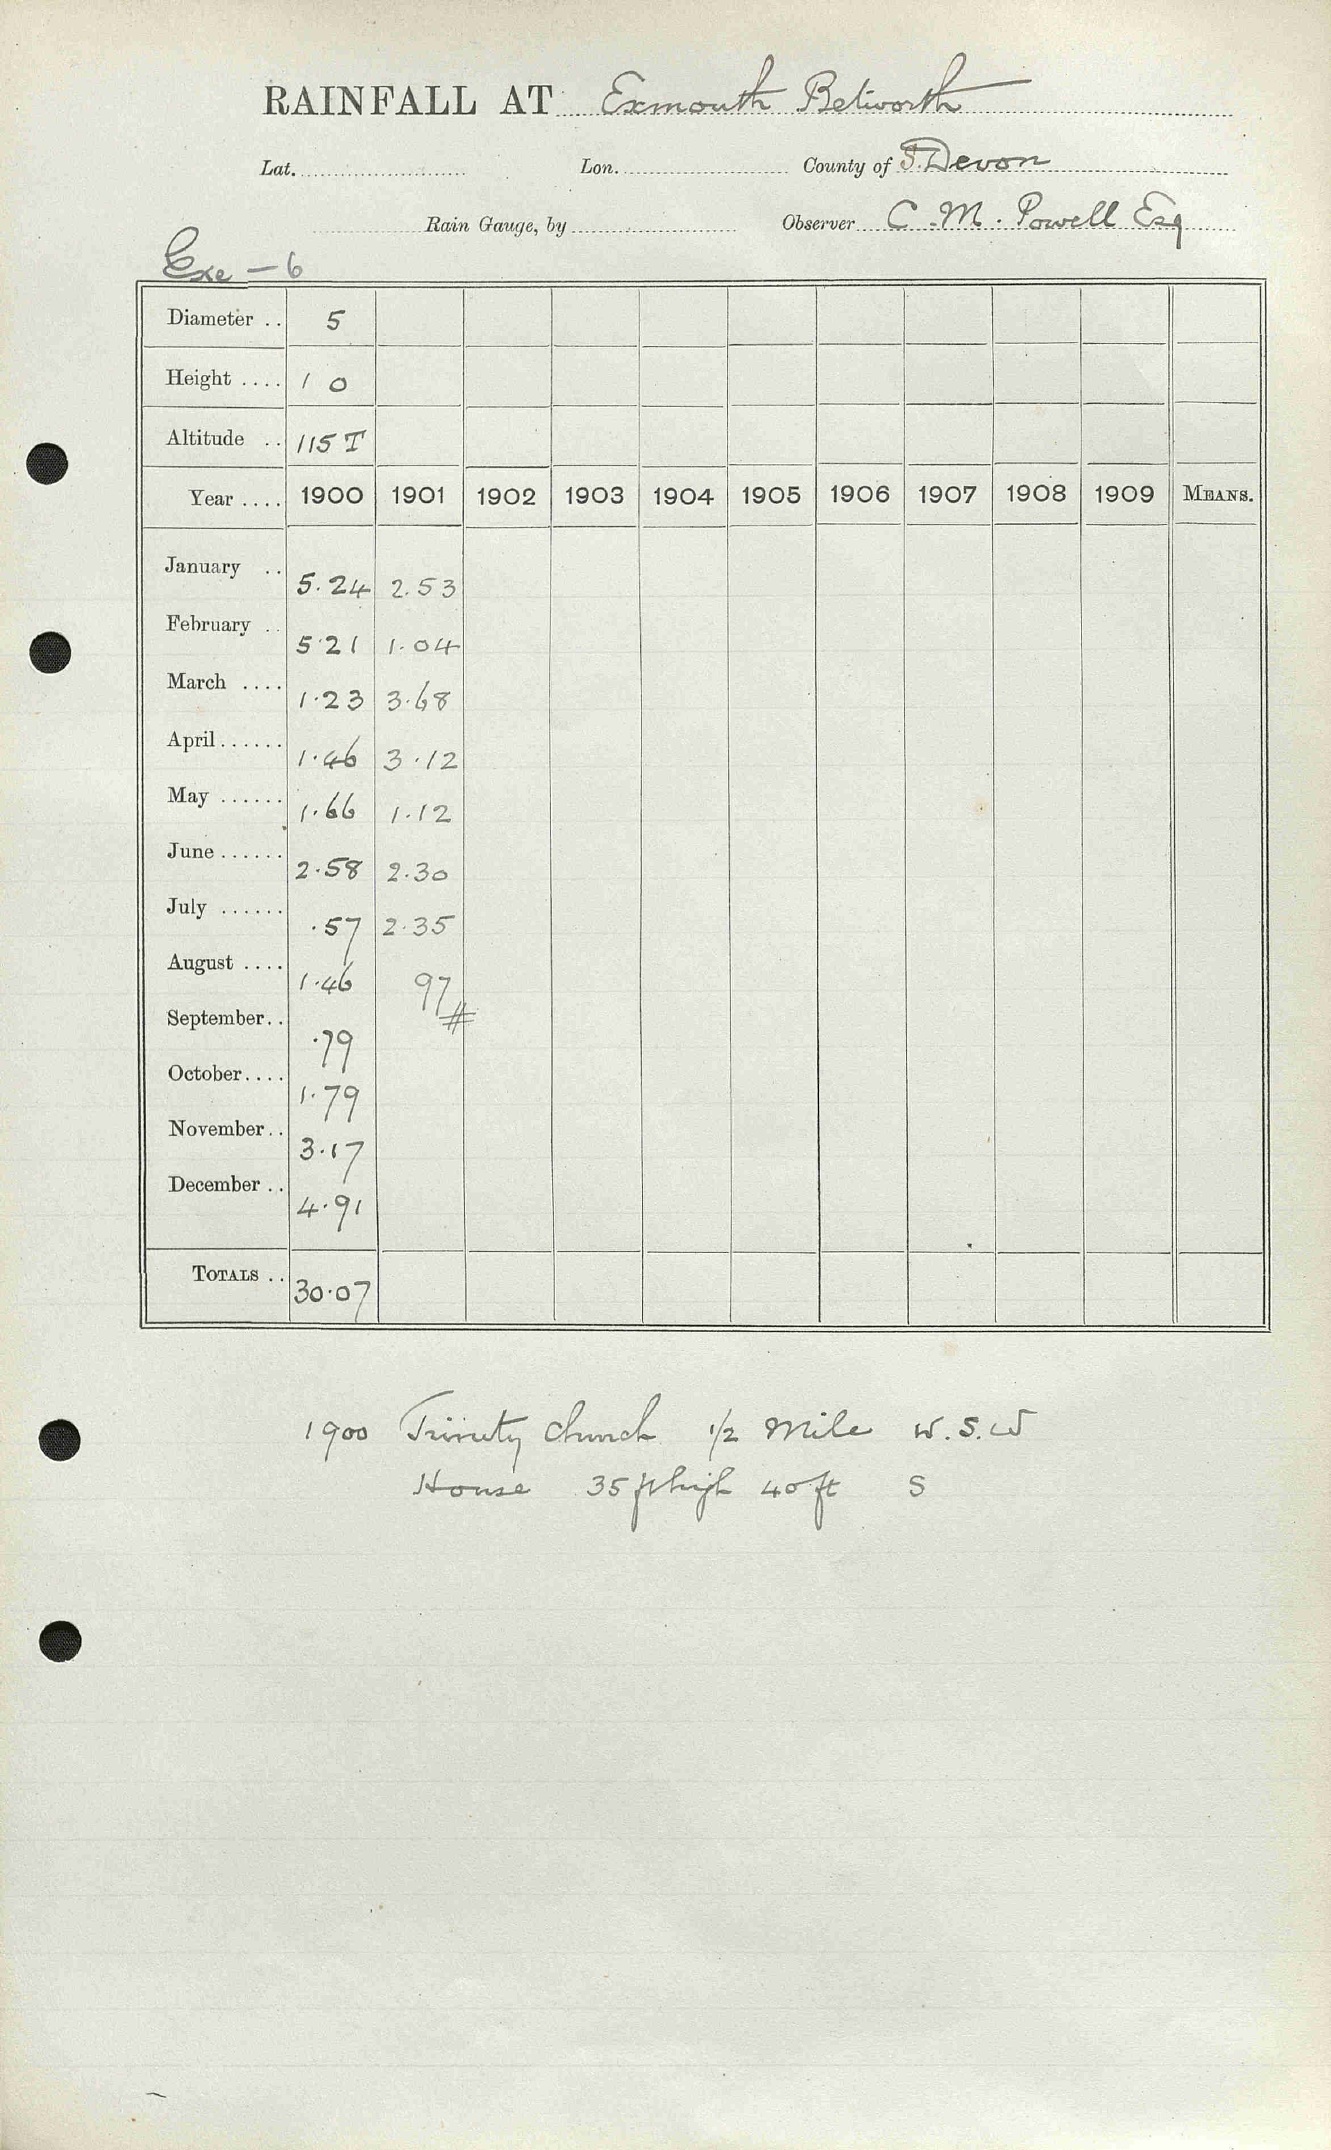 RAINFALL AT Exmouth Betworth
Lat. Lon. County of S. Devon
Rain Gauge, by Observer C. M. Powell Esq
Exe - 6
Diameter .. 5
Height .... 1 0
Altitude .. 115 T
Year .... 1900 1901 1902 1903 1904 1905 1906 1907 1908 1909 MEANS.
January .. 5.24 2.53
February .. 5.21 1.04
March .... 1.23 3.68
April...... 1.46 3.12
May ...... 1.66 1.12
June ...... 2.58 2.30
July ...... .57 2.35
August .... 1.46 97
September.. .79 #
October.... 1.79
November.. 3.17
December .. 4.91
TOTALS .. 30.07
1900 Trinity Church 1/2 Mile W.S.W
House 35 ft high 40 ft S